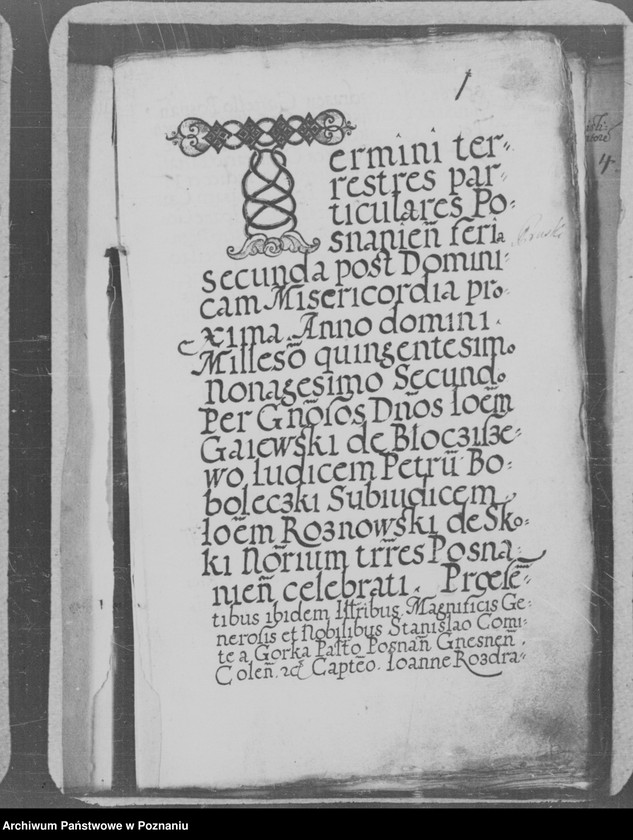 1
Termini ter-
restres par-
ticulares Po-
snanien̄ feria
secunda post Domini-
cam Misericordia pro-
xima Anno domini
Millesō quingentesimo
Nonagesimo Secundo
Per Gn̄osos Dn̄os Ioēm
Gaiewski de Bloczisze-
wo Iudicem Petrū Bo-
boleczki Subiudicem
Ioēm Roznowski de Sko-
ki No͞rium tr͞res Posna-
nien̄ celebrati. Præsē-
tibus ibidem Illr̄ibus. Magnificis Ge-
nerosis et Nobilibus Stanislao Comi-
te a Gorka Palto Posnan̄ Gnesnen̄.
Colen̄. Captēo. Ioanne Rozdra-
4.
Archiwum Państwowe w Poznaniu